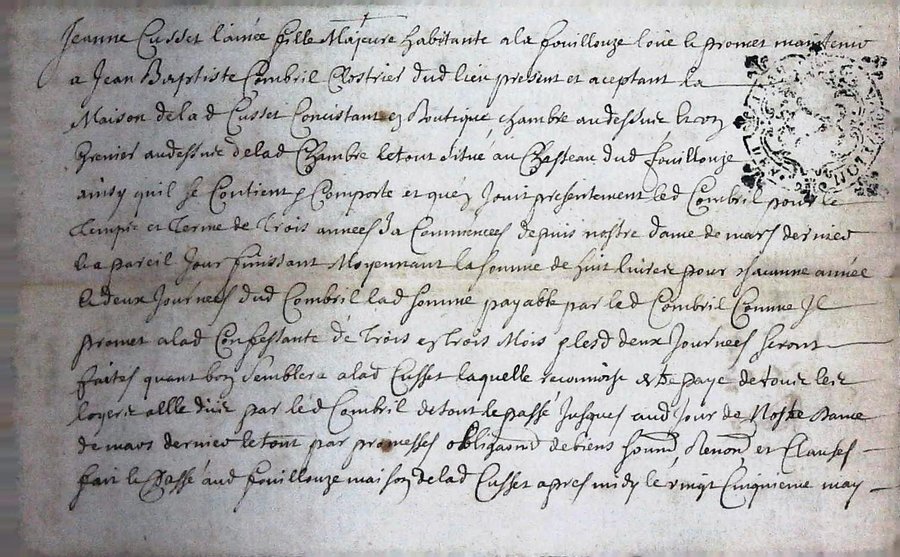 Jeanne Cusset lainée fille Majeure habitante a la fouillouze loue et promet maintenir
a Jean Baptiste Combril Clostrier dud lieu present et aceptant la
Maison de lad Cusset Concistant en Boutique chambre au dessus et un
Grenier au dessus de lad Chambre le tout situé au Chasteau dud fouillouze
ainsy quil se Contient et Comporte et quen Jouit presentement led Combril pour le
temps et terme de trois années Ja Commencées depuis nostre dame de mars dernier
et a pareil Jour finissant Moyennant la somme de huit livres pour chacunne année
et deux Journées dud Combril lad somme payable par led Combril Comme Il
promet a lad Confessante de trois en trois Mois et lesd deux Journées seront
faites quant bon semblera a lad Cusset laquelle reconnoist de tous les
loyers a elle dus par led Combril de tout le passé Jusques aud Jour de Nostre Dame
de mars dernier le tout par promesses obligaons de biens soumd Renond et Clauses
fait et Passé aud fouillouze maison de lad Cusset apres midy le vingt Cinquieme may